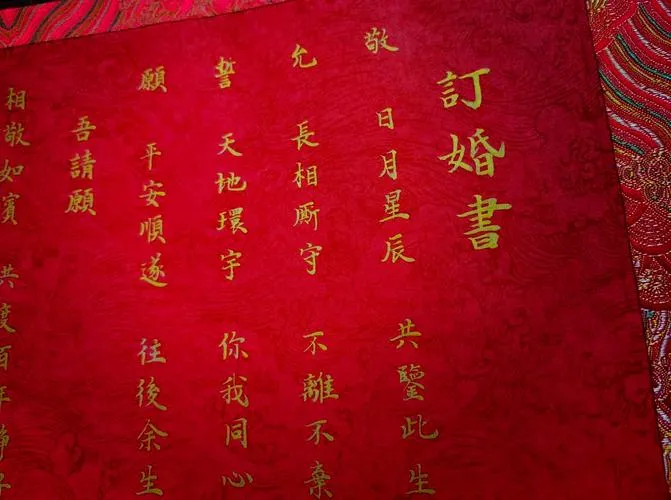 訂婚書
敬 日月星辰 共鑒此生
允 長相厮守 不離不棄
誓 天地環宇 你我同心
願 平安順遂 往後余生
吾請願
相敬如賓 共度百年